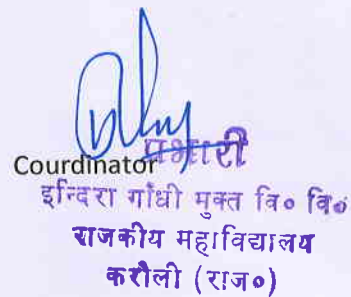 प्रभारी
Courdinator
इन्दिरा गाँधी मुक्त वि० वि०
राजकीय महाविद्यालय
करौली (राज०)